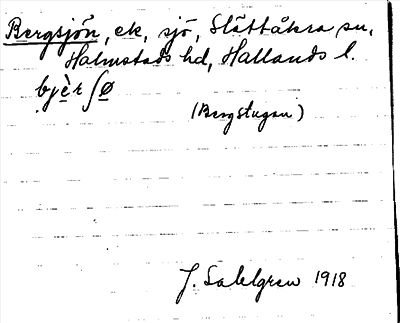 Bergsjön, ek, sjö, Slättåkra sn,
Halmstads hd, Hallands l.
bjè̱r ʃø̱
(Bergstugan)
J. Sahlgren 1918